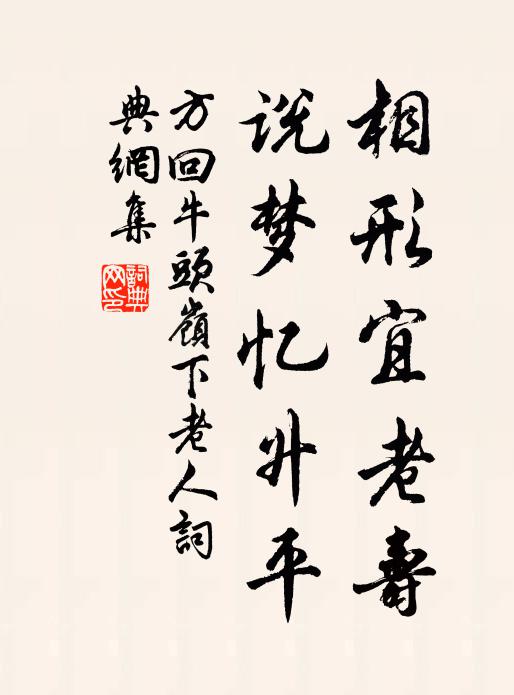 相形宜老壽
说梦忆升平
方回牛頭嶺下老人詞
典網集
詞典網印